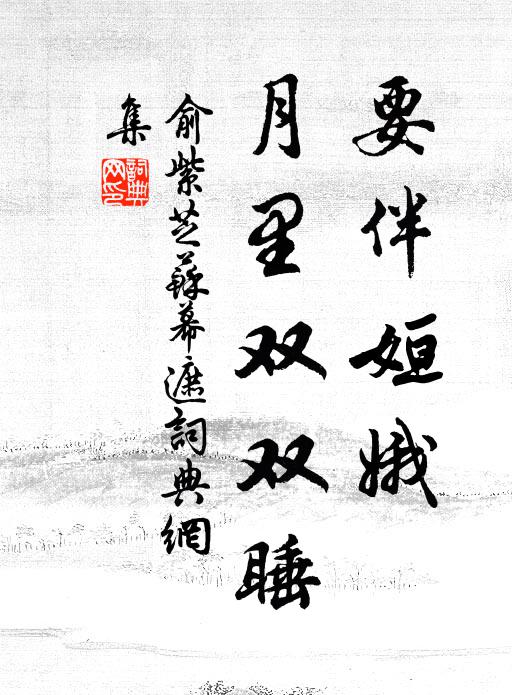 要伴姮娥
月里双双睡
俞紫芝蘇幕遮詞典網
集
詞典网印